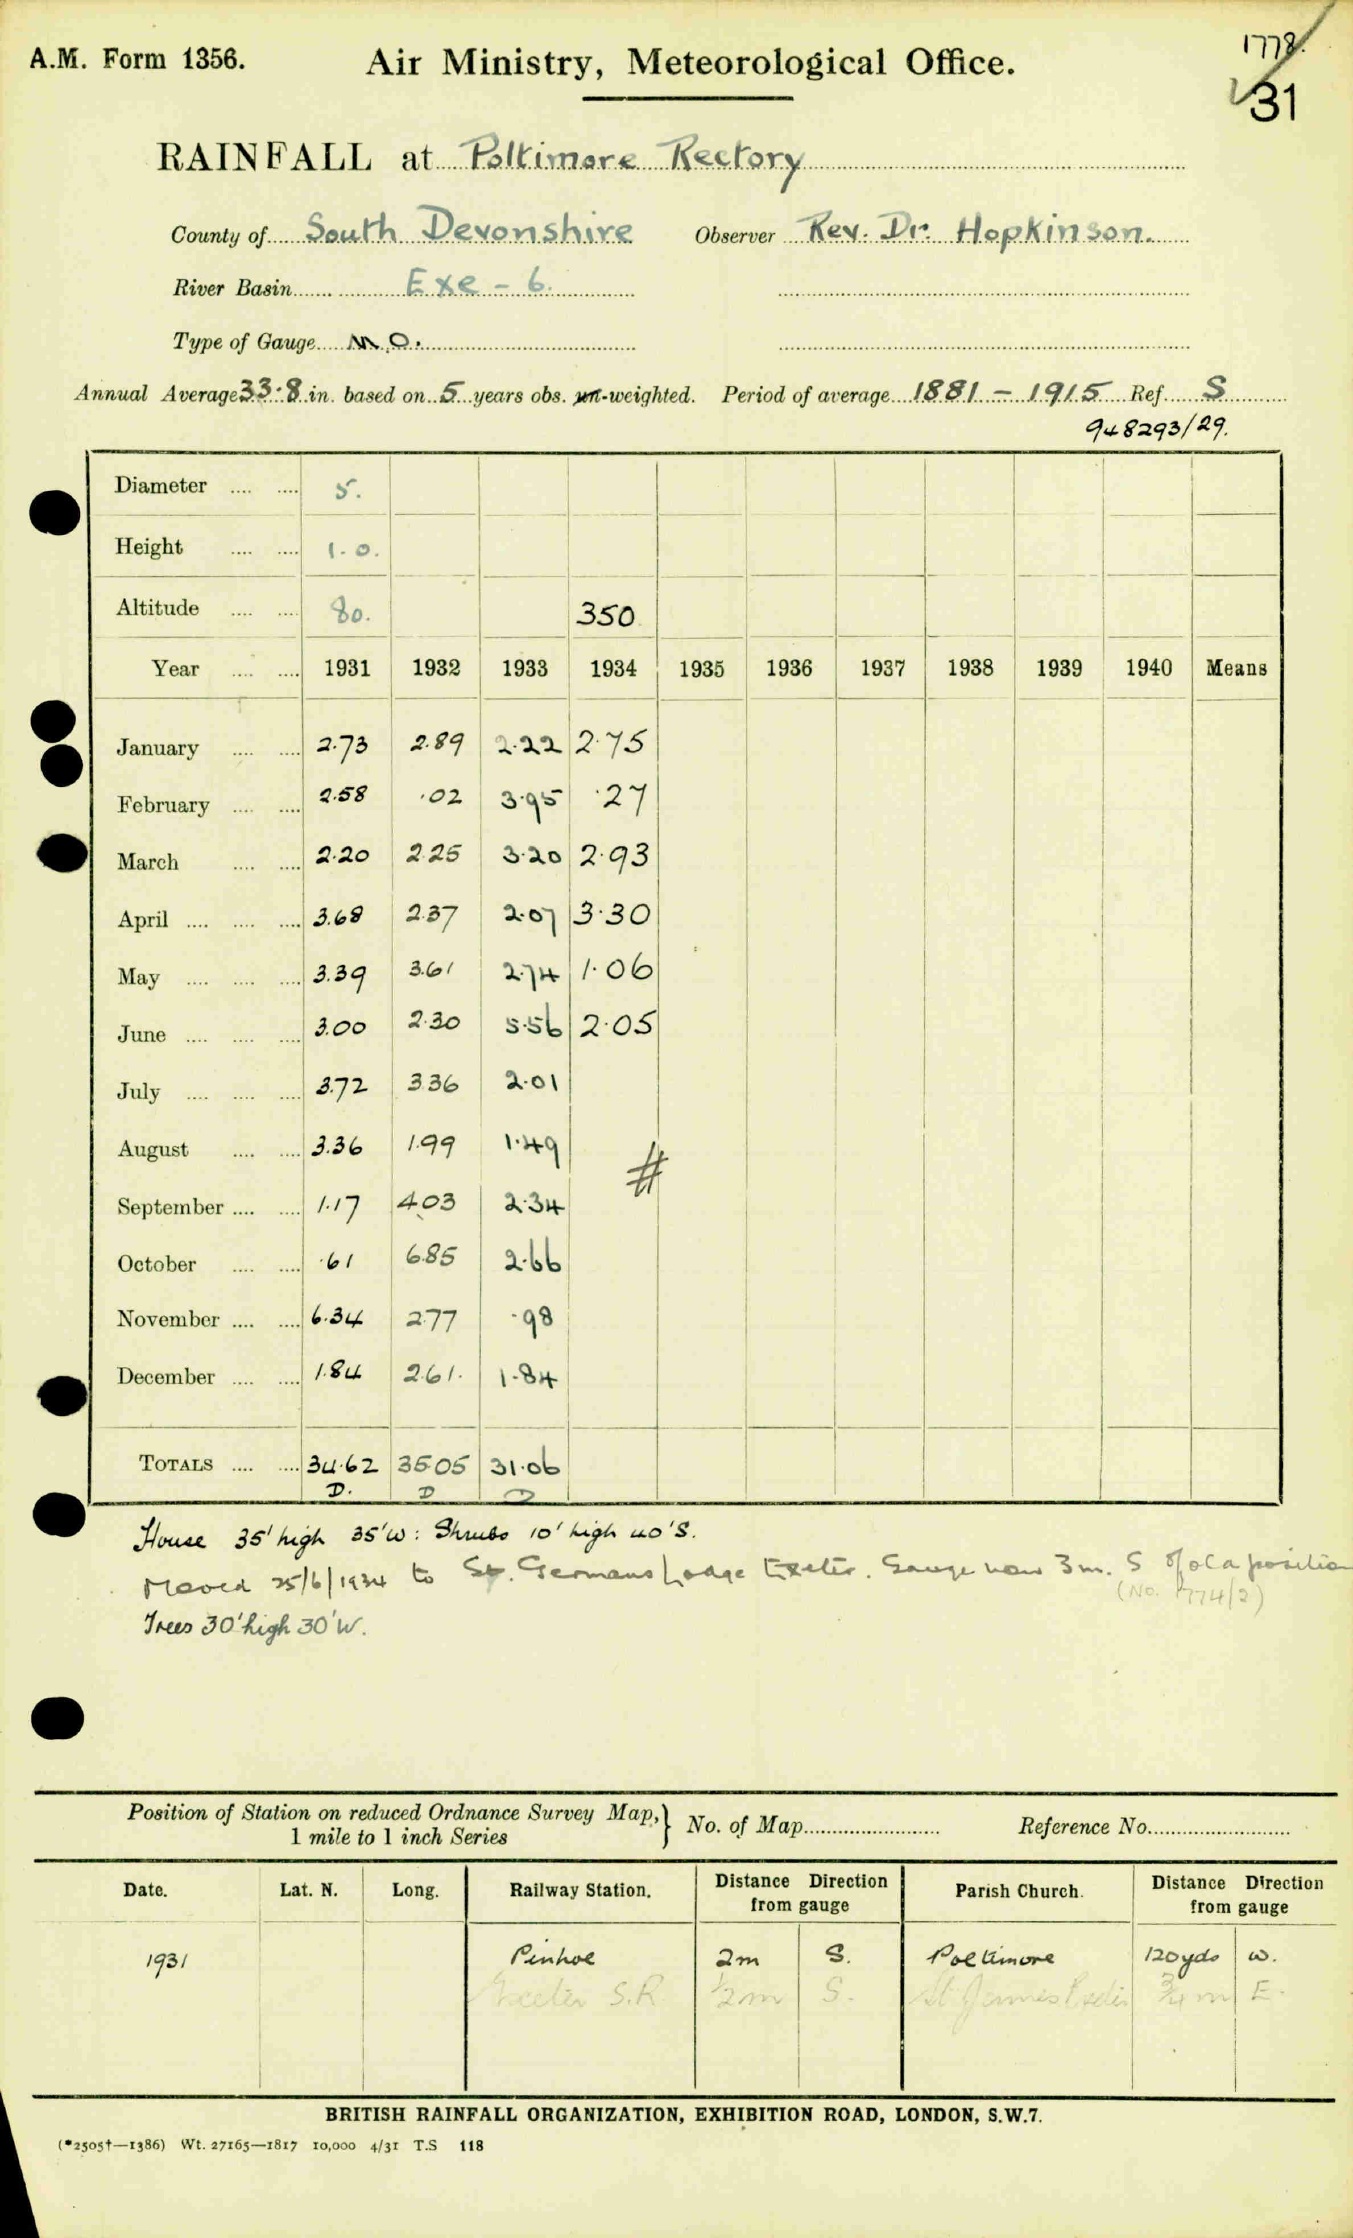 A.M. Form 1356.
Air Ministry, Meteorological Office.
1778.
31
RAINFALL at Poltimore Rectory
County of South Devonshire Observer Rev. Dr. Hopkinson.
River Basin Exe - 6.
Type of Gauge M.O.
Annual Average 33.8 in. based on 5 years obs. un-weighted. Period of average 1881 - 1915 Ref. S
948293/29.
Diameter .... .... 5.
Height .... .... 1.0.
Altitude .... .... 80. 350
Year .... .... 1931 1932 1933 1934 1935 1936 1937 1938 1939 1940 Means
January .... .... 2.73 2.89 2.22 2.75
February .... .... 2.58 .02 3.95 .27
March .... .... 2.20 2.25 3.20 2.93
April .... .... .... 3.68 2.37 2.07 3.30
May .... .... .... 3.39 3.61 2.74 1.06
June .... .... .... 3.00 2.30 5.56 2.05
July .... .... .... 3.72 3.36 2.01
August .... .... 3.36 1.99 1.49
#
September .... .... 1.17 4.03 2.34
October .... .... .61 6.85 2.66
November .... .... 6.34 2.77 .98
December .... .... 1.84 2.61. 1.84
TOTALS .... .... 34.62 35.05 31.06
D. D D
House 35' high 35'W: Shrubs 10' high 40'S.
Moved 25/6/1934 to St. Germans Lodge Exeter. Gauge now 3m. S of old position
(No. 1774/2)
Trees 30' high 30'W.
Position of Station on reduced Ordnance Survey Map,} No. of Map Reference No.
1 mile to 1 inch Series
Date. Lat. N. Long. Railway Station. Distance Direction from gauge Parish Church. Distance Direction from gauge
1931 Pinhoe 2m S. Poltimore 120yds W.
Exeter S.R. 1/2m S. St James Exeter 3/4 m E.
BRITISH RAINFALL ORGANIZATION, EXHIBITION ROAD, LONDON, S.W.7.
(*2505†—1386) Wt. 27165—1817 10,000 4/31 T.S 118